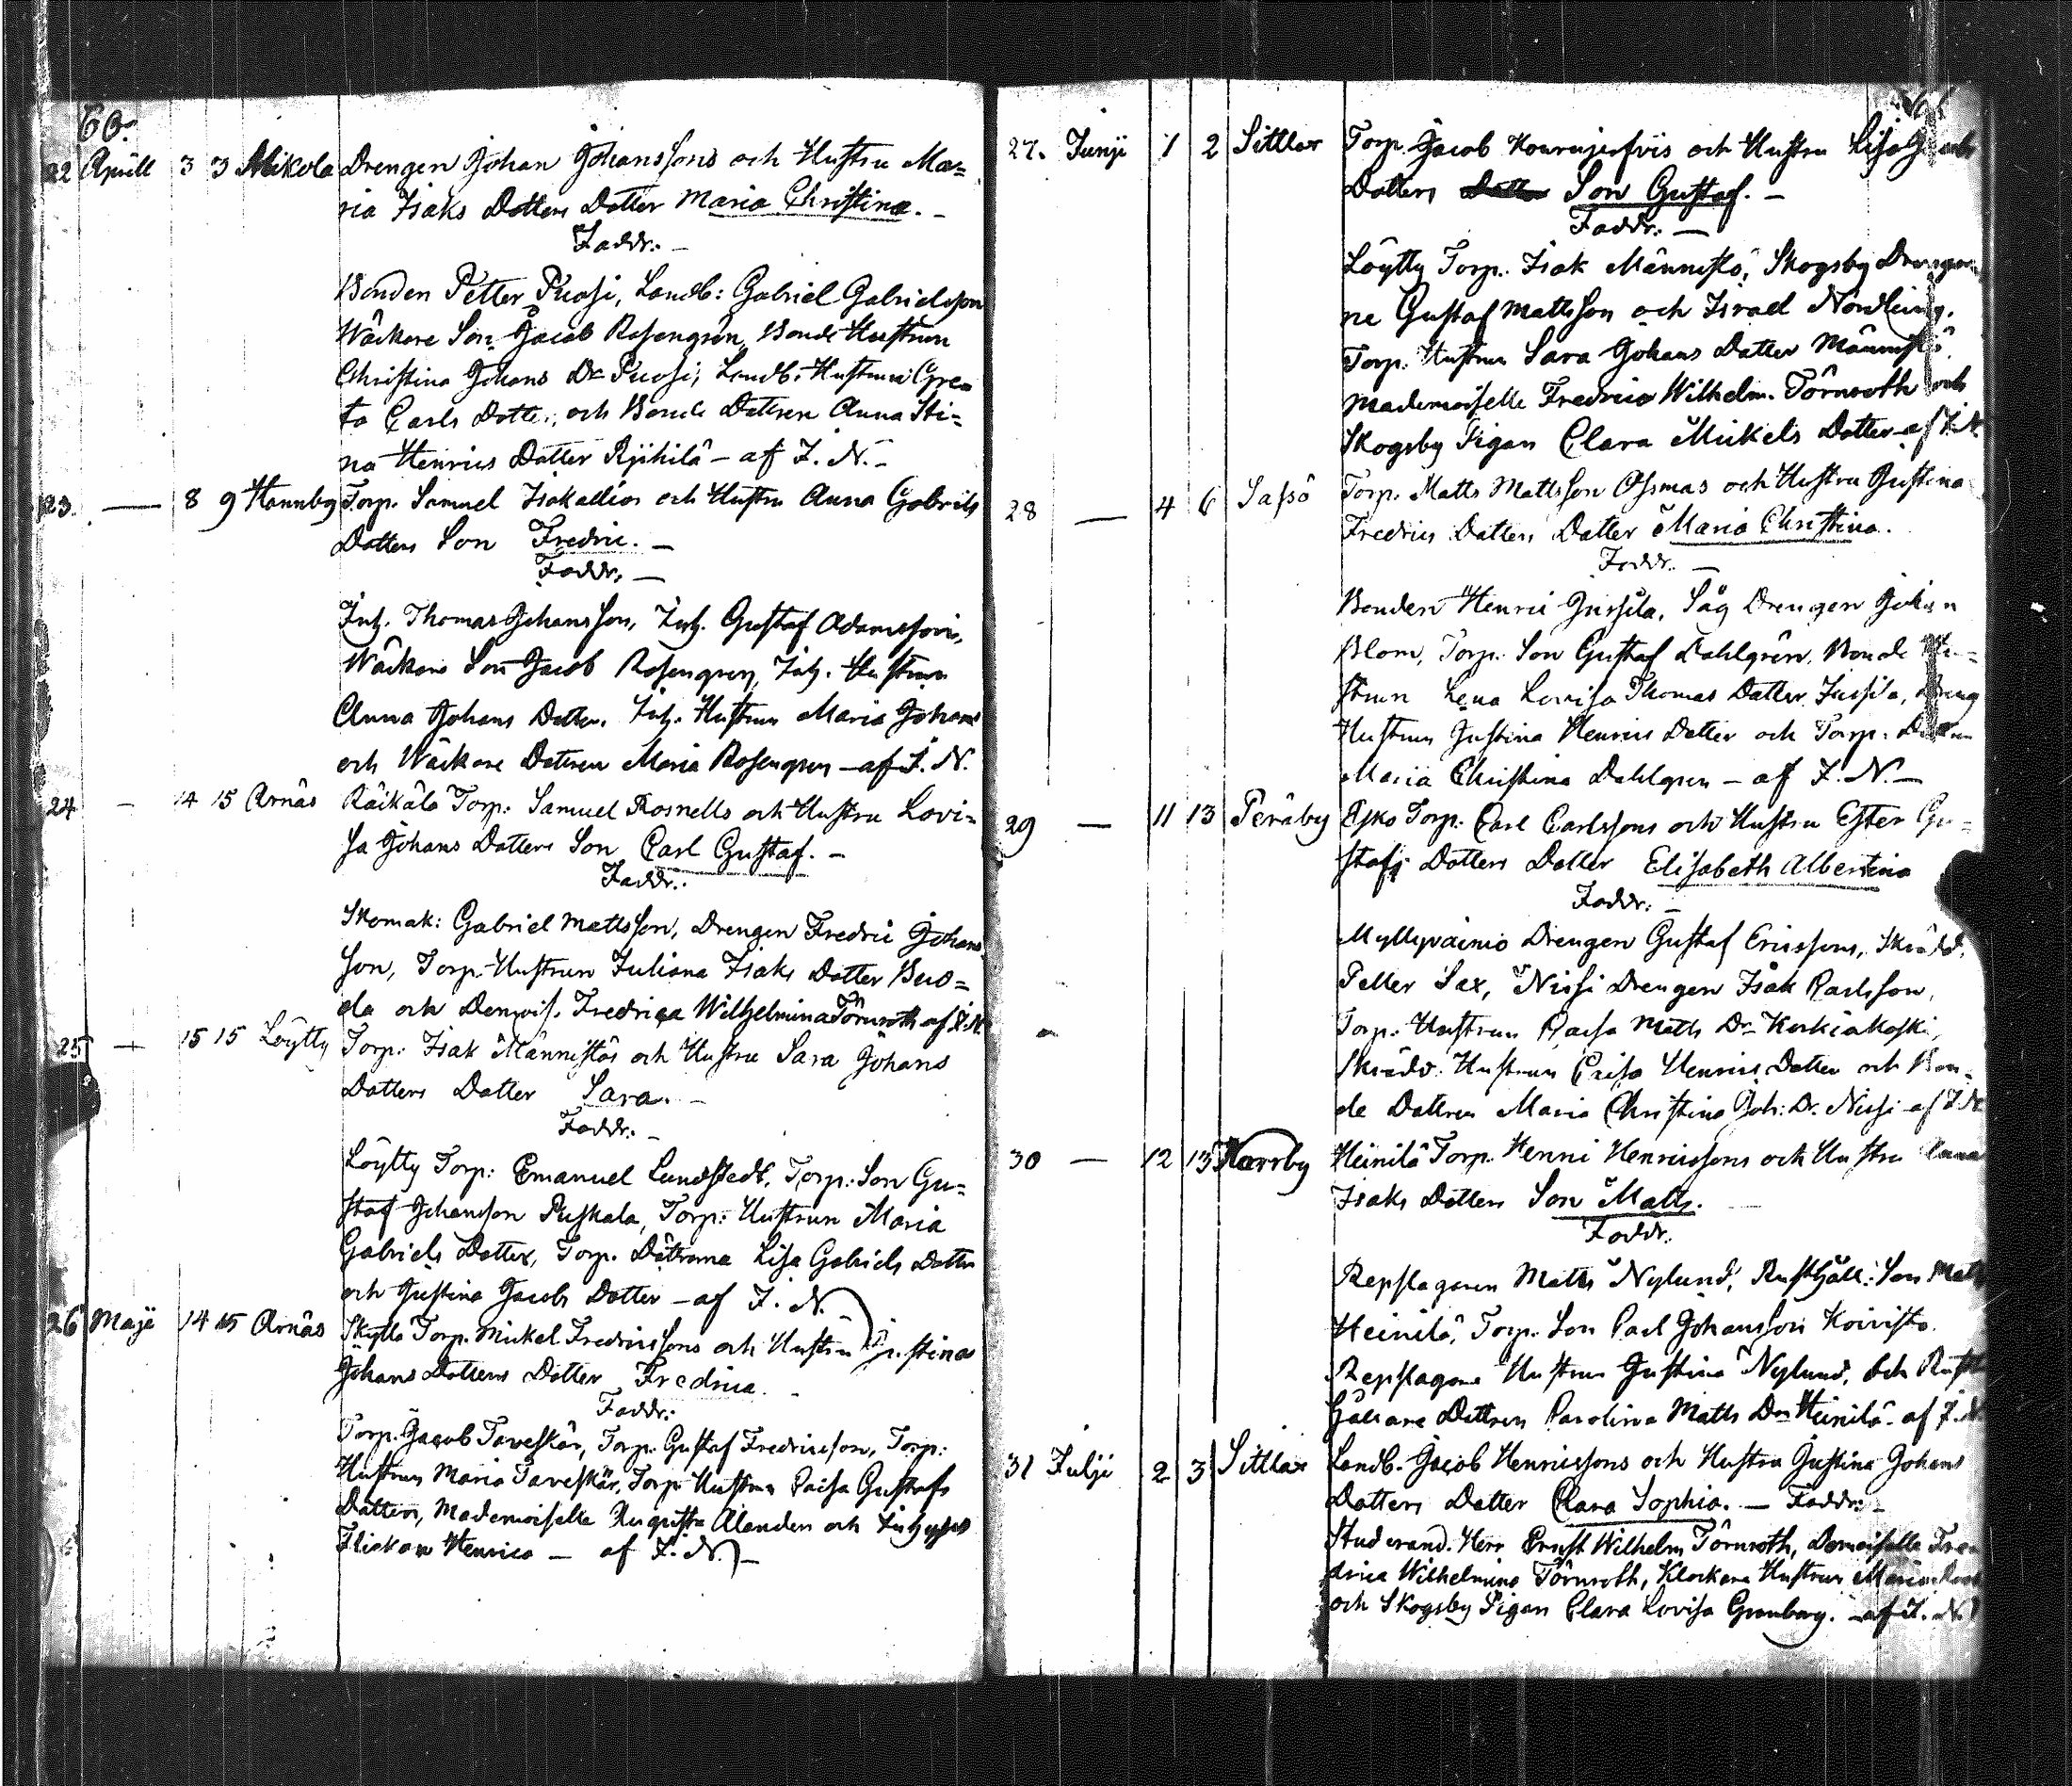 60.
22 Aprill 3 3 Mikola Drengen Johan Johanssons och Hustru Ma=
ria Isaks Dotters Dotter Maria Christina. -
Faddr: -
Bonden Petter Puosi, Landb: Gabriel Gabrielsson
Wäckare Son Jacob Rosengrén, Bonde Hustrun
Christina Johans Dr Puosi, Landb. Hustrun Gre=
ta Carls Dotter, och Bonde Dottren Anna Sti=
na Henrics Dotter Rijhilä - af F. N. -
23. — 8 9 Hannby Torp. Samuel Isakallios och Hustru Anna Gabriels
Dotters Son Fredric. -
Faddr. —
Inh. Thomas Johansson, Inh. Gustaf Adamsson,
Wäckare Son Jacob Rosengren, Inh. Hustrun
Anna Johans Dotter, Inh. Hustrun Maria Johans
och Wäckare Dottren Maria Rosengren - af F. N.
24 - 14 15 Arnäs Räikälä Torp: Samuel Rosnells och Hustru Lovi=
sa Johans Dotters Son Carl Gustaf. -
Faddr.
Skomak: Gabriel Mattsson, Drengen Fredric Johans
son, Torp. Hustrun Juliana Isaks Dotter
och Demois. Fredrica Wilhelmina Törnroth af F. N.
25 — 15 15 Löytty Torp: Isak Männistös och Hustru Sara Johans
Dotters Dotter Sara. -
Faddr: -
Löytty Torp: Emanuel Lundstedt, Torp: Son Gu=
staf Johansson Puskala, Torp: Hustrun Maria
Gabriels Dotter, Torp. Döttrarna Lisa Gabriels Dotter
och Justina Jacobs Dotter - af F. N.
26 Maji 14 15 Arnäs Skyttä Torp. Mickel Fredricssons och Hustru Justina
Johans Dotters Dotter Fredrica. -
Faddr:
Torp. Jacob Taveskär, Torp. Gustaf Fredricsson, Torp:
Hustrun Maria Taveskär, Torp. Hustrun Caisa Gustafs
Dotter, Mademoiselle Augusta Alenden och
Flickan Henrica — af F. N. -
27. Junji 1 2 Sittlax Torp. Jacob och Hustru Lisa Jacobs
Dotters Son Gustaf. -
Faddr: —
Löytty Torp. Isak Männistö, Skogsby Drengar=
ne Gustaf Mattsson och Israel Nordling.
Torp. Hustrun Sara Johans Dotter Männistö,
Mademoiselle Fredrica Wilhelm. Törnroth och
Skogsby Pigan Clara Mickels Dotter af F. N.
28 — 4 6 Sassö Torp. Matts Mattsson Ossmas och Hustru Justina
Fredrics Dotters Dotter Maria Christina.
Faddr. —
Bonden Henric Jussila, Såg Drengen Johan
Blom, Torp. Son Gustaf Dahlgrén, Bonde Hu=
strun Lena Lovisa Thomas Dotter Jussila, Dreng
Hustrun Justina Henrics Dotter och Torp. Dottren
Maria Christina Dahlgren - af F. N. -
29 — 11 13 Peräby Esko Torp: Carl Carlssons och Hustru Ester Gu=
stafs Dotters Dotter Elisabeth Albertina
Faddr: -
Myllyvainio Drengen Gustaf Ericssons, Skrädd.
Petter Sax, Nissi Drengen Isak Carlsson,
Torp. Hustrun Caisa Matts Dr Korkiakoski,
Skrädd. Hustrun Caisa Henrics Dotter och Bon=
de Dottren Maria Christina Joh: Dr. Nissi af F. N.
30 — 12 13 Norrby Heinilä Torp. Henric Henricssons och Hustru Anna
Isaks Dotters Son Matts.
Faddr.
Repslagaren Matts Nylund, Rusthåll: Son Matts
Heinilä, Torp. Son Carl Johansson Koivisto.
Repslagare Hustrun Justina Nylund, och Rust=
hållare Dottren Carolina Matts Dr Heinilä. af F. N.
31 Julji 2 3 Sittlax Landb. Jacob Henricssons och Hustru Justina Johans
Dotters Dotter Clara Sophia. — Faddr:
Studerand. Herr Ernst Wilhelm Törnroth, Demoiselle Fre=
drica Wilhelmina Törnroth, Klockare Hustrun Maria
och Skogsby Pigan Clara Lovisa Granberg. - af F. N.